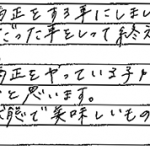 歯正をする年にしまし
だった年をとって終え
歯正をやっている子ど
と思います。
状態で美味しいもの